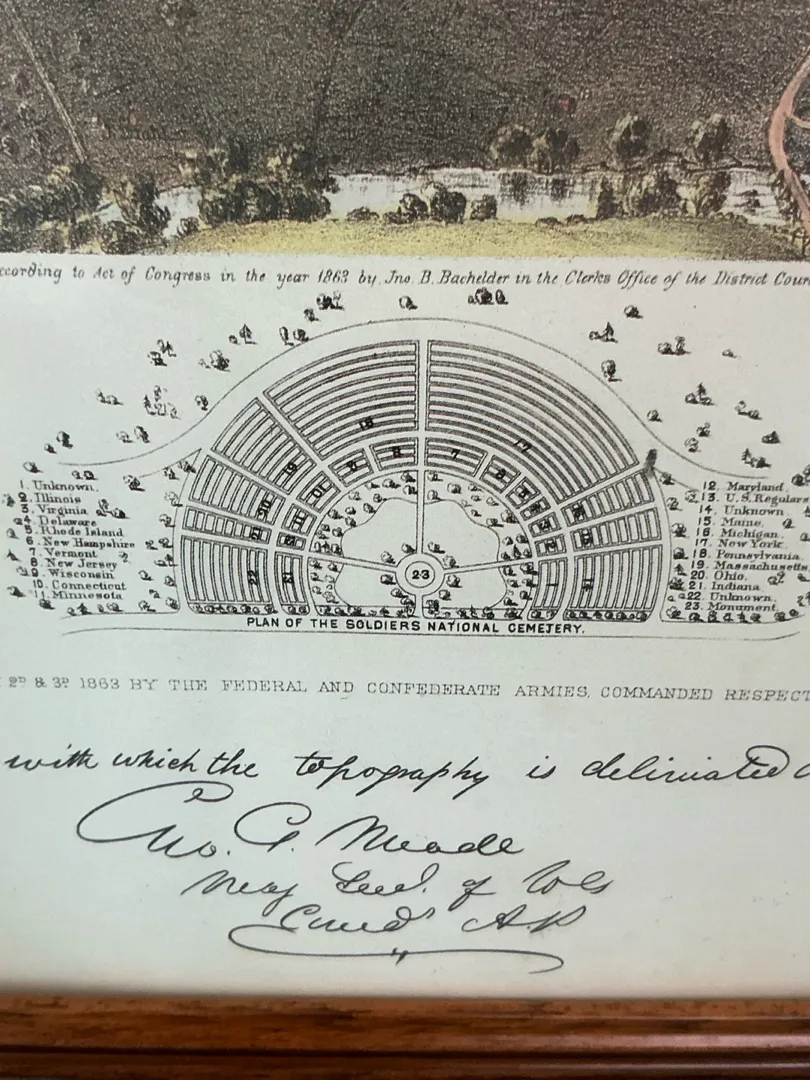 ccording to Act of Congress in the year 1863 by Jno. B. Bachelder in the Clerks Office of the District Cour
1. Unknown.
2. Illinois
3. Virginia
4. Delaware
5. Rhode Island
6. New Hampshire
7. Vermont
8. New Jersey
9. Wisconsin
10. Connecticut
11. Minnesota
12. Maryland
13. U.S. Regulars
14. Unknown
15. Maine.
16. Michigan.
17. New York.
18. Pennsylvania
19. Massachusetts
20. Ohio.
21. Indiana
22. Unknown.
23. Monument
18
17
19
8
7
10
20
11
21
22
1
23
PLAN OF THE SOLDIERS NATIONAL CEMETERY.
2D & 3D 1863 BY THE FEDERAL AND CONFEDERATE ARMIES, COMMANDED RESPECT
with which the topography is deliniated
Geo. G. Meade
Maj Genl. of Vols
Comdg A.P